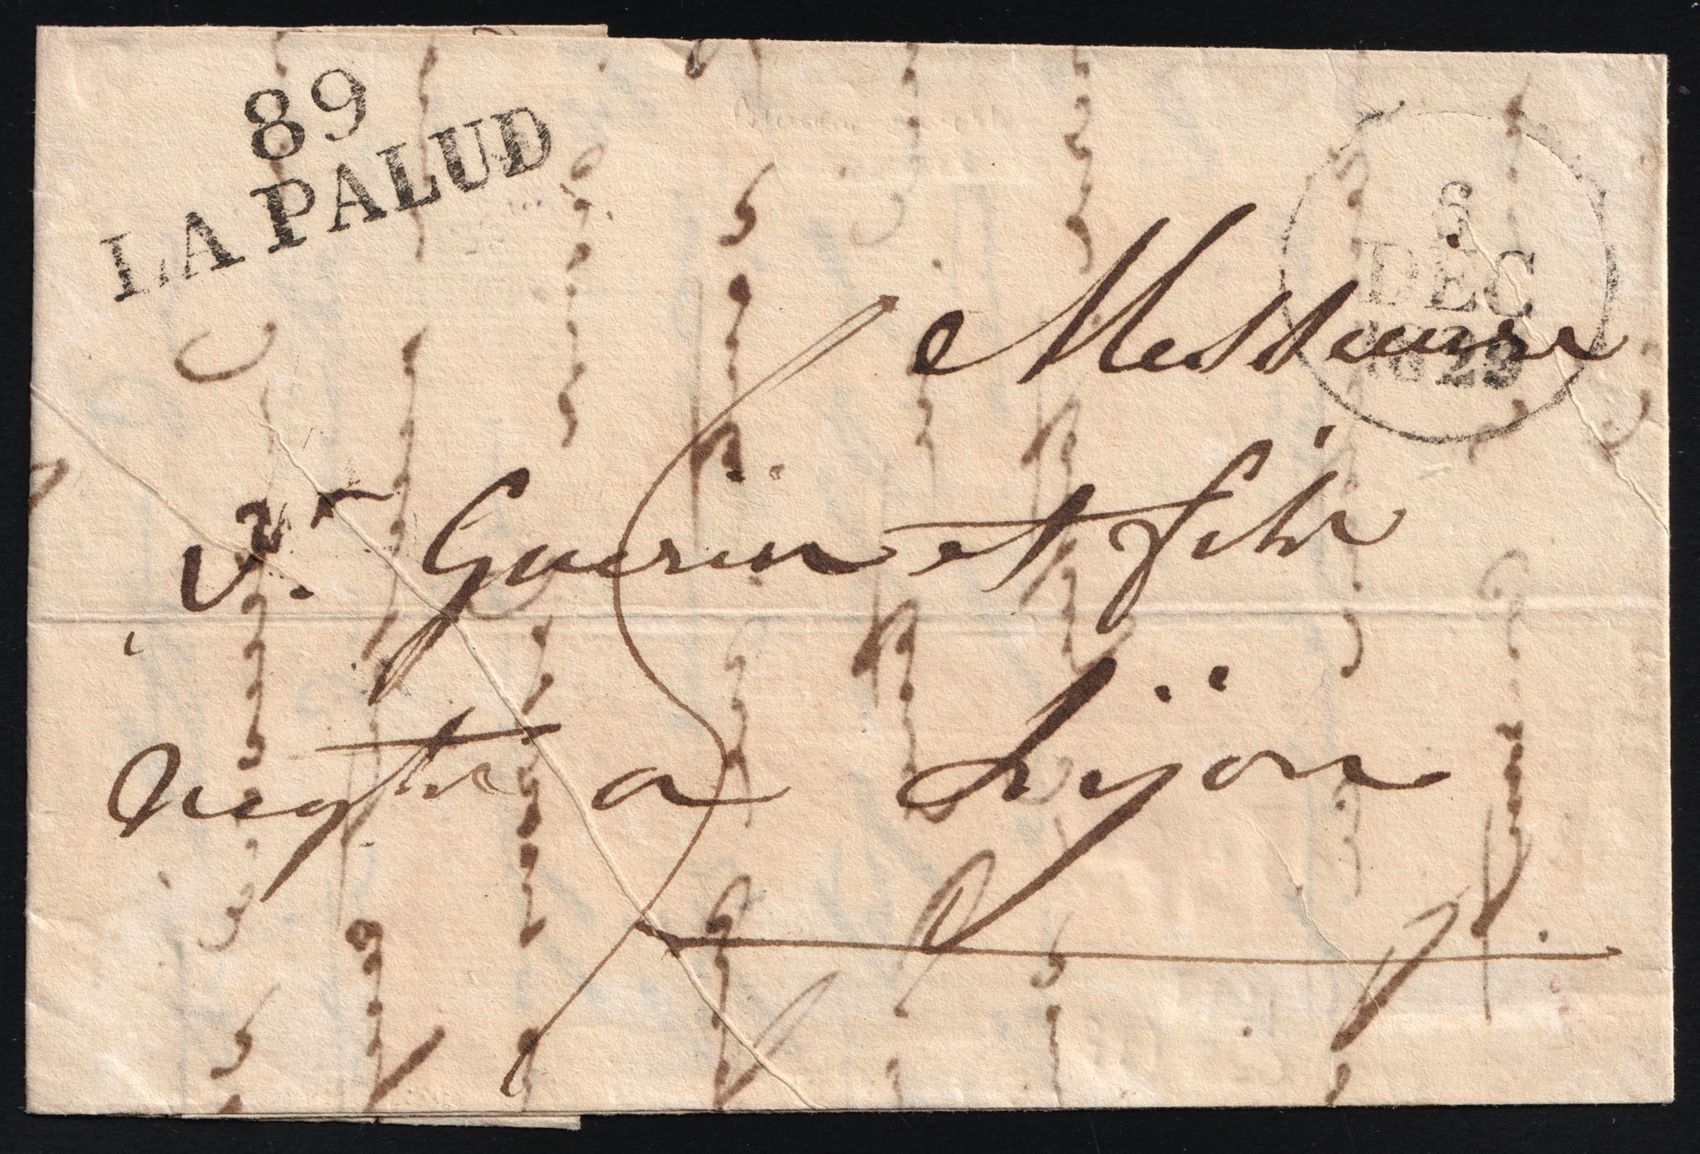 89
LA PALUD
6
DEC
1829
Messieurs
Vve Guerin et fils
negts a Lyon